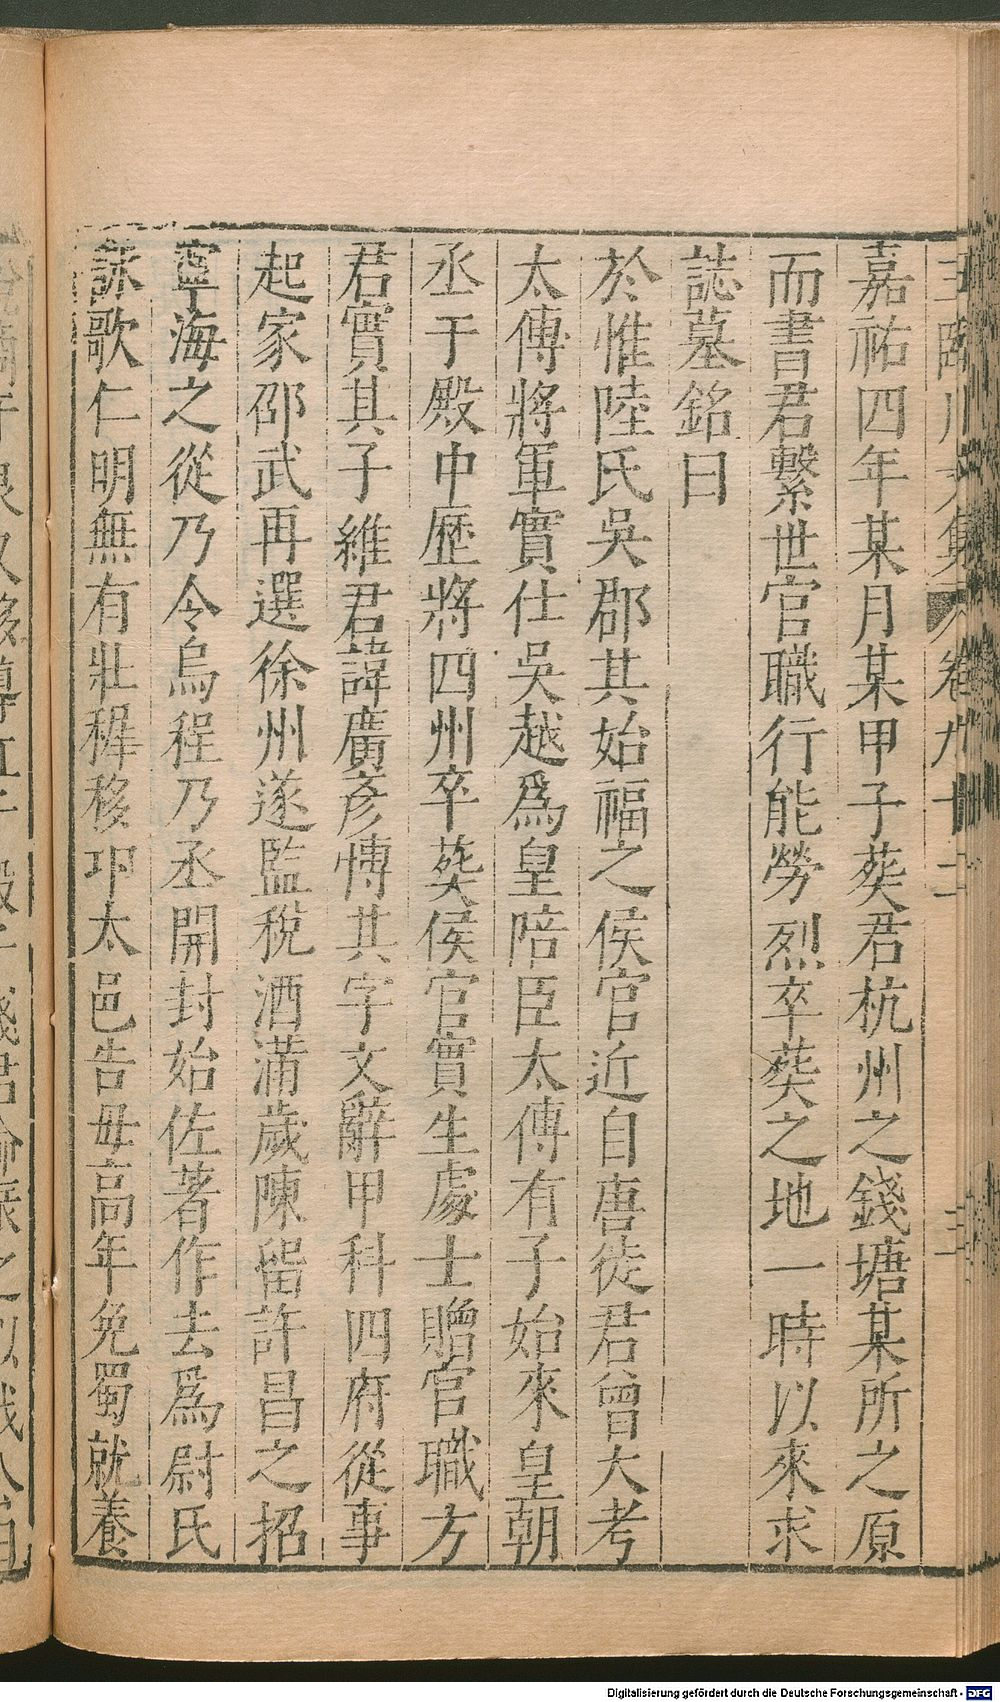 嘉祐四年某月某甲子葬君杭州之錢塘某所之原
而書君繫世官職行能勞烈卒葬之地一時以來求
誌墓銘曰
於惟陸氏吳郡其始福之侯官近自唐徙君曾大考
太傅將軍實仕吳越爲皇陪臣太傅有子始來皇朝
丞于殿中歷將四州卒葬侯官實生處士贈官職方
君實其子維君諱廣彥愽其字文辭甲科四府從事
起家邵武再選徐州遂監稅酒滿歲陳留許昌之招
寧海之從乃令烏程乃丞開封始佐著作去爲尉氏
詠歌仁明無有壯穉移卭太邑告毋高年免蜀就養
Digitalisierung gefördert durch die Deutsche Forschungsgemeinschaft - DFG